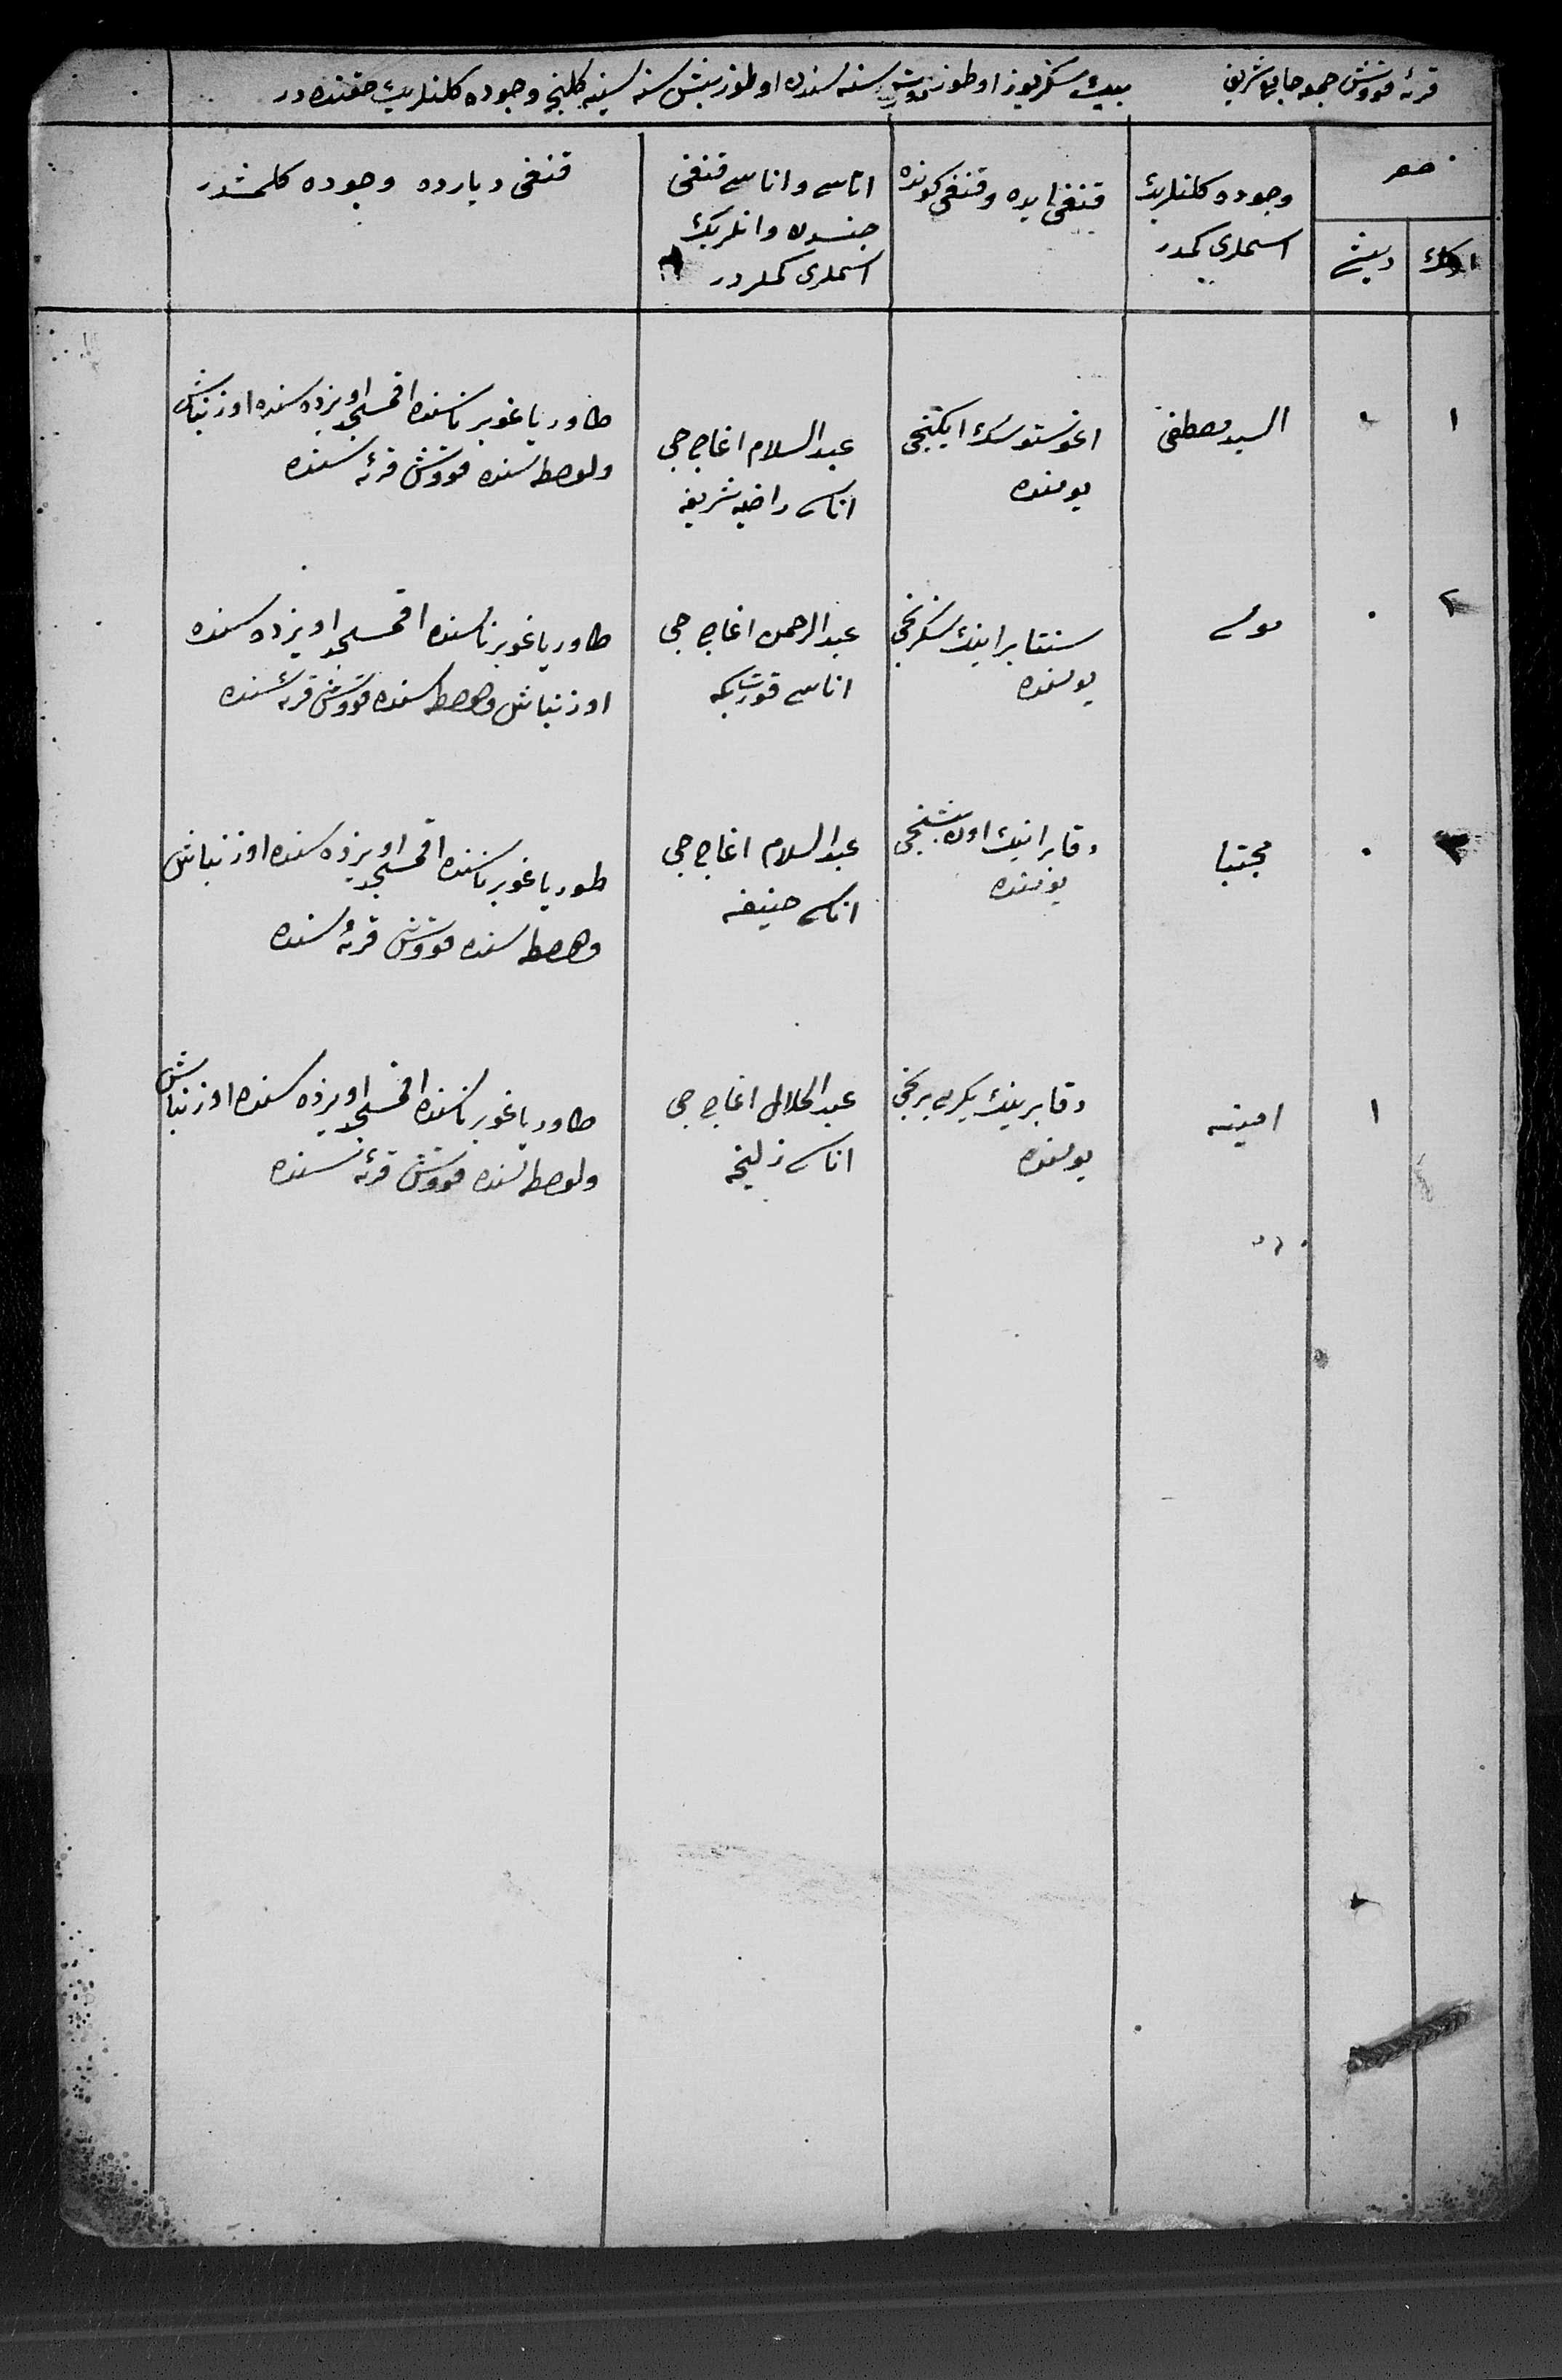 قرئه قووش جمعه جامع شريفى
بيڭ سكز يوز اوطوز دورت سنه سندن اوطوز بيش سنه سينه كلنجه وجوده كلنلريڭ حقنده در
نمر
اركك
ديشى
وجوده كلنلريڭ
اسملرى كمدر
قنغى ايده و قنغى كونده
اتاسى و اناسى قنغى
جنسدن و انلريڭ
اسملرى كملردر
قنغى ديارده وجوده كلمشدر
١
السيد مصطفى
اغوستوسڭ ايكنجى
يومنده
عبد السلام اغاجى
اناسى راضيه شريفه
طاوريا غوبرناسنده اقمسجد اويزده سنده اوزنباش
ولوصطسنده قووش قرئه سنده
٢
موسى
سنتابرانيڭ سكزنجى
يومنده
عبد الرحمن اغاجى
اناسى قورتبكه
طاوريا غوبرناسنده اقمسجد اويزده سنده
اوزنباش ولوصطسنده قووش قرئه سنده
٣
مجتبا
دقابرانيڭ اون بشنجى
يومنده
عبد السلام اغاجى
اناسى حنيفه
طوريا غوبرناسنده اقمسجد اويزده سنده اوزنباش
ولوصطسنده قووش قرئه سنده
١
امينه
دقابرينڭ يكرمى برنجى
يومنده
عبد الجلال اغاجى
اناسى زليخه
طاوريا غوبرناسنده اقمسجد اويزده سنده اوزنباش
ولوصطسنده قووش قرئه سنده